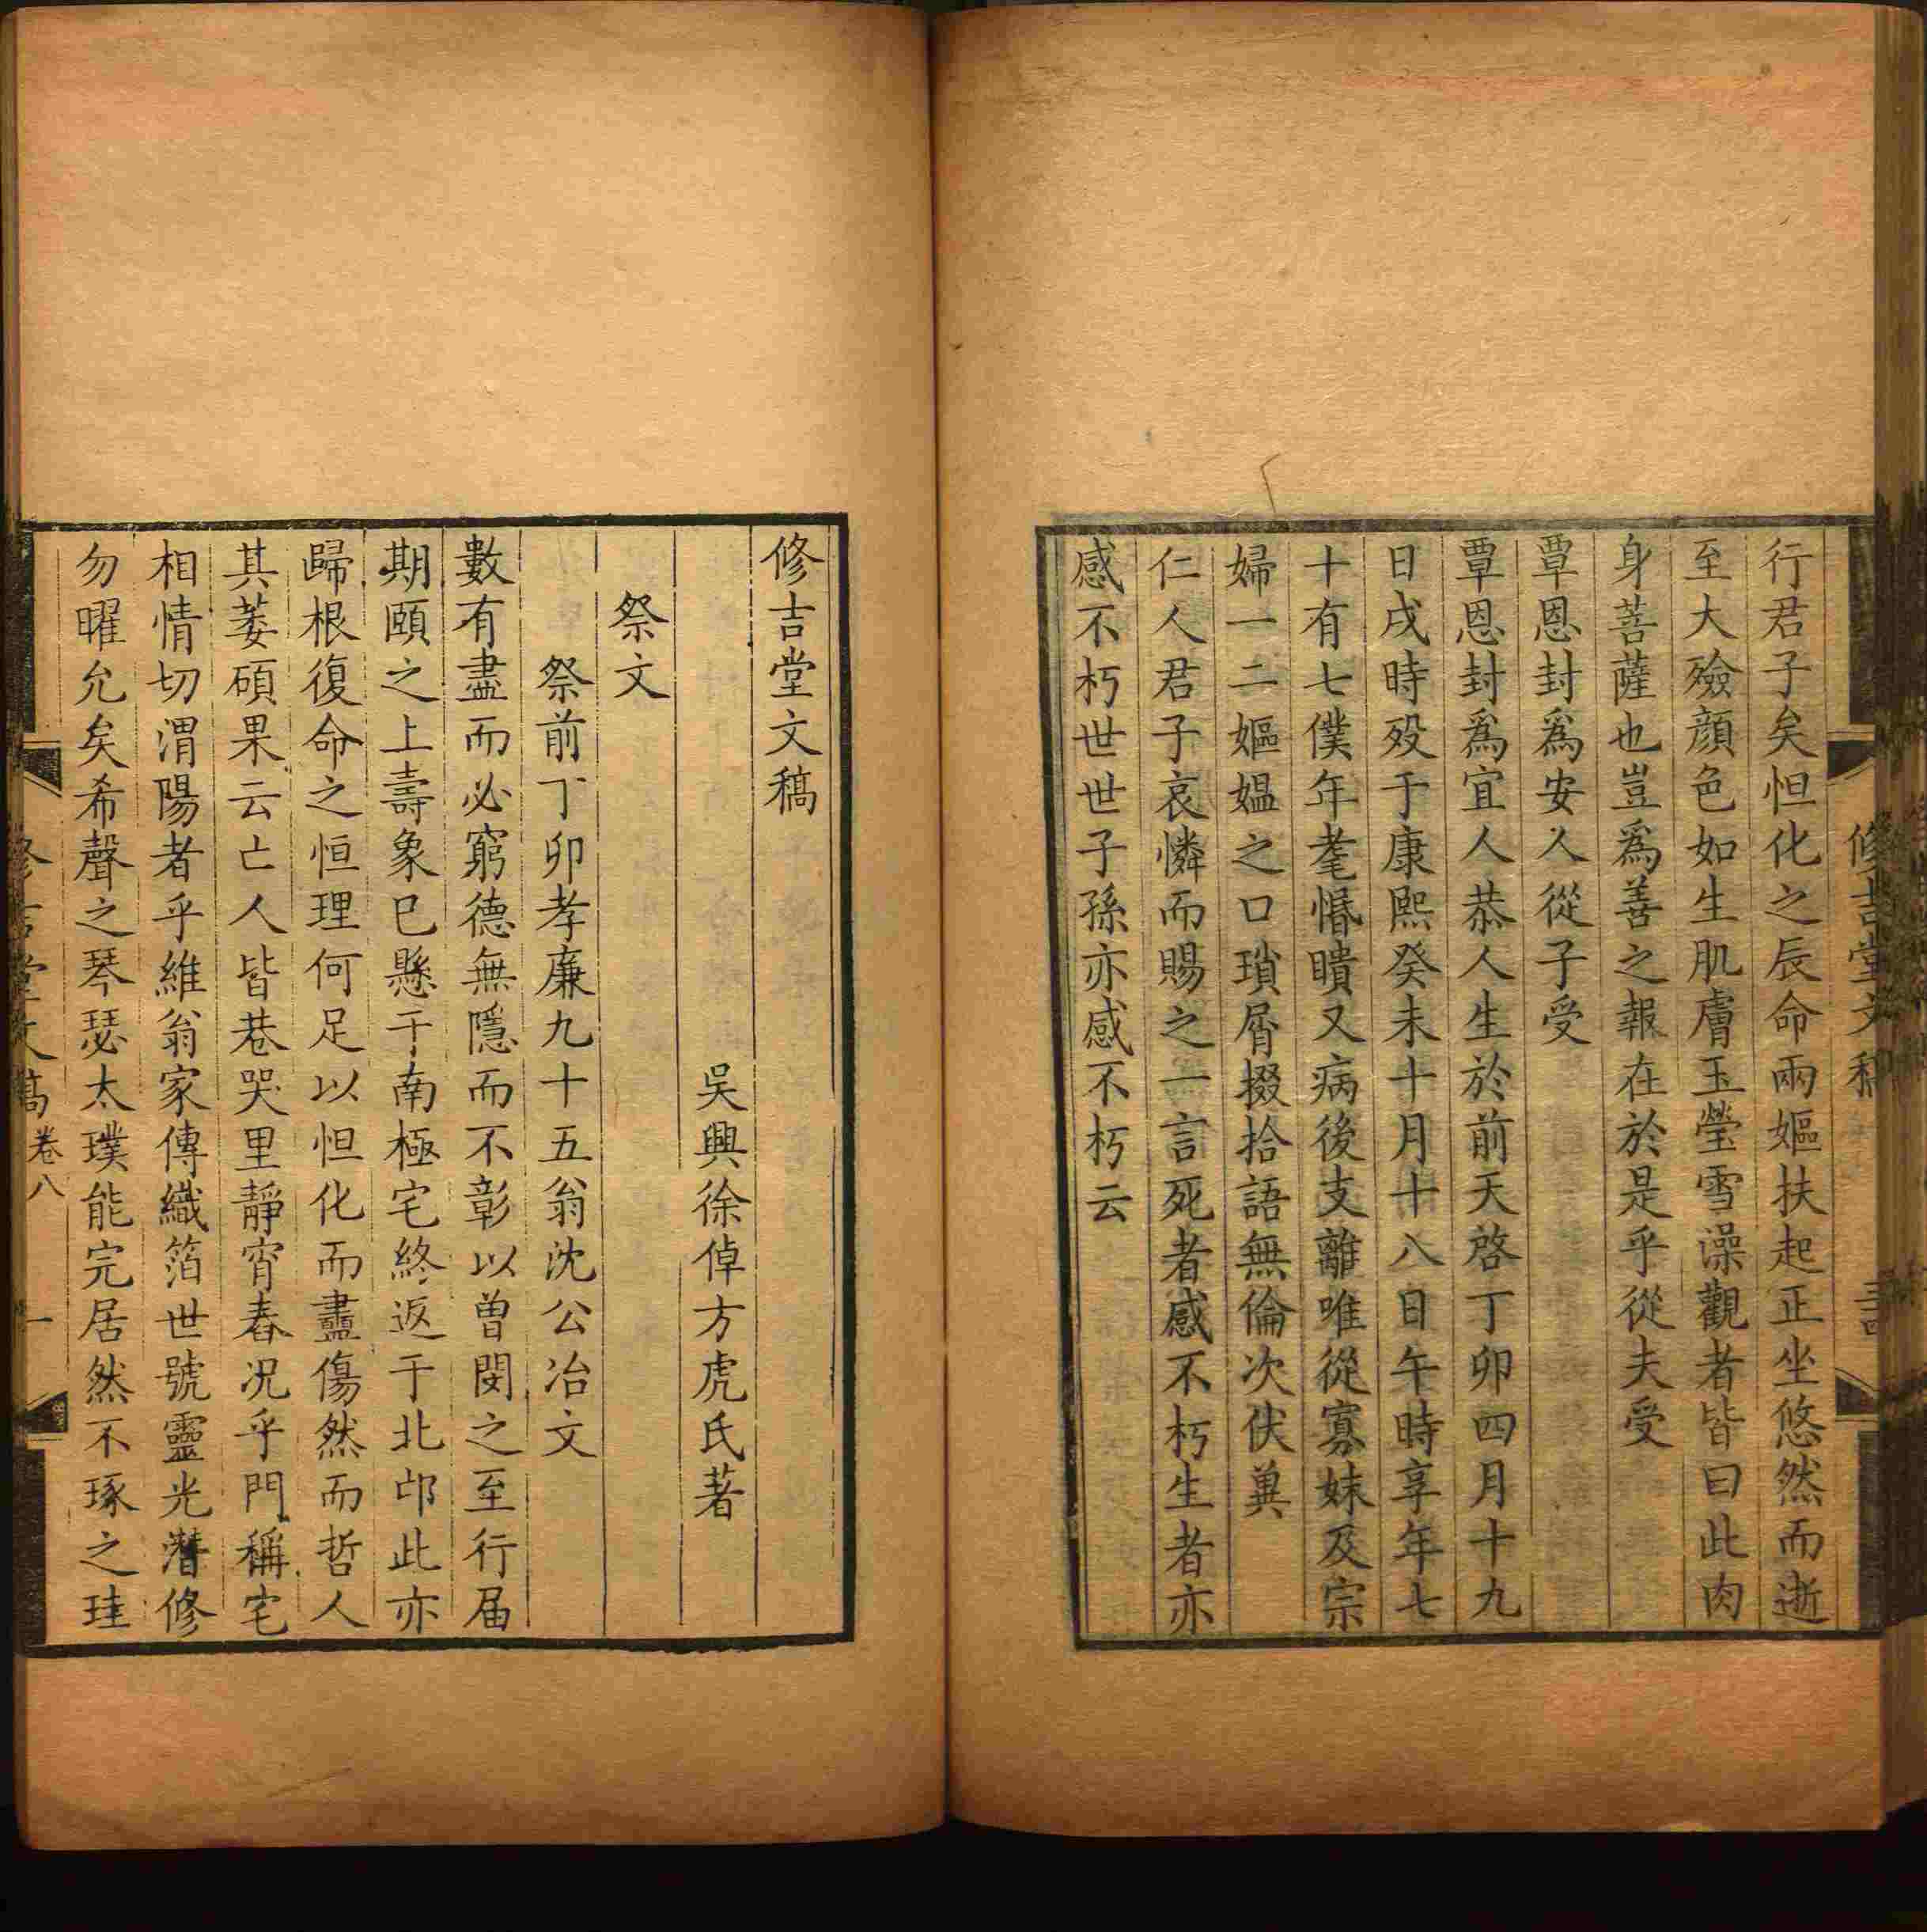 修吉堂文稿
行君子矣怛化之辰命兩嫗扶起正坐悠然而逝
至大殮顔色如生肌膚玉瑩雪澡觀者皆曰此肉
身菩薩也豈爲善之報在於是乎從夫受
覃恩封爲安人從子受
覃恩封爲宜人恭人生於前天啓丁卯四月十九
日戌時殁于康熙癸未十月十八日午時享年七
十有七僕年耄惛瞶又病後支離唯從寡妹及宗
婦一二嫗媪之口瑣屑掇拾語無倫次伏冀
仁人君子哀憐而賜之一言死者感不朽生者亦
感不朽世世子孫亦感不朽云
修吉堂文稿
吳興徐倬方虎氏著
祭文
祭前丁卯孝廉九十五翁沈公冶文
數有盡而必窮德無隱而不彰以曾閔之至行届
期頤之上壽象巳懸于南極宅終返于北邙此亦
歸根復命之恒理何足以怛化而盡傷然而哲人
其萎碩果云亡人皆巷哭里靜宵舂况乎門稱宅
相情切渭陽者乎維翁家傳織箔世號靈光潛修
勿曜允矣希聲之琴瑟太璞能完居然不琢之珪
修吉堂文稿 卷八 一